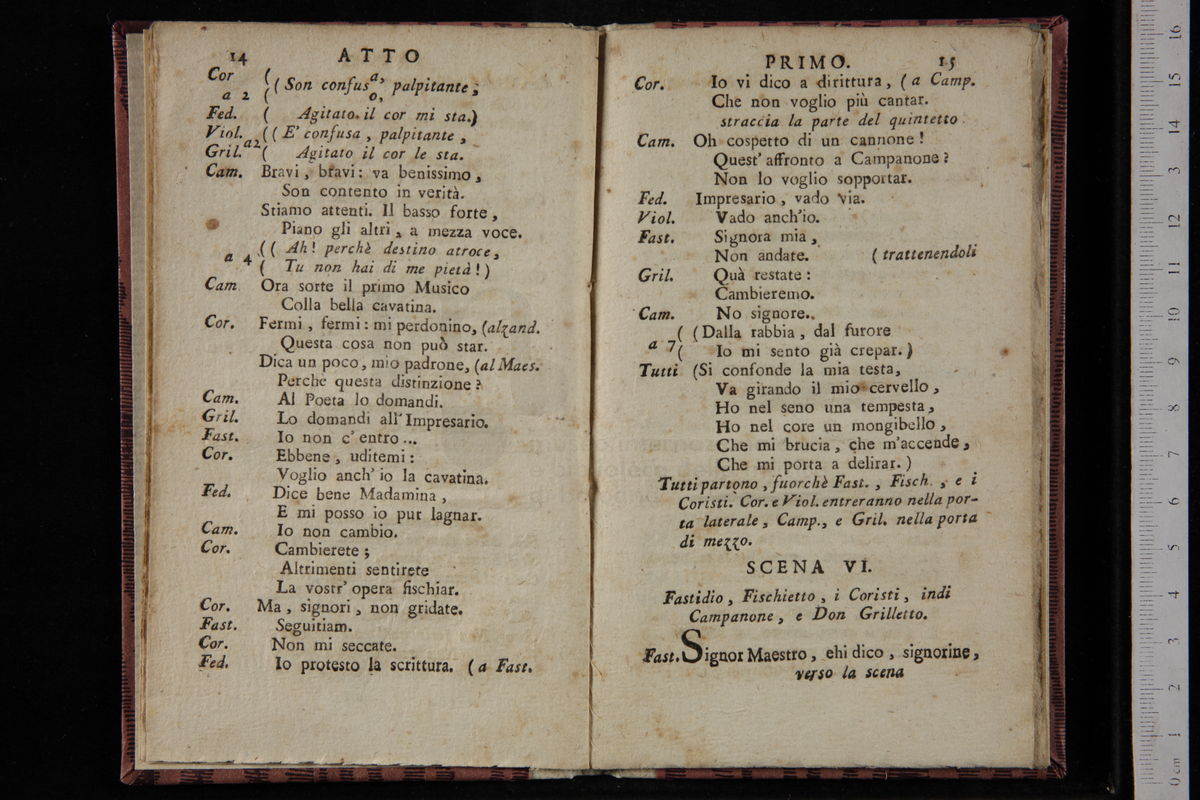 14 ATTO
Cor ( ( Son confus a, o, palpitante ;
a 2 (
Fed. ( Agitato il cor mi sta.)
Viol. ( ( E' confusa , palpitante ,
a2
Gril. ( Agitato il cor le sta.
Cam. Bravi , bravi : va benissimo ,
Son contento in verità.
Stiamo attenti. Il basso forte ,
Piano gli altri , a mezza voce.
a 4 ( ( Ah ! perchè destino atroce ,
( Tu non hai di me pietà ! )
Cam Ora sorte il primo Musico
Colla bella cavatina.
Cor. Fermi , fermi : mi perdonino, (alzand.
Questa cosa non può star.
Dica un poco, mio padrone, (al Maes.
Perchè questa distinzione ?
Cam. Al Poeta lo domandi.
Gril. Lo domandi all' Impresario.
Fast. Io non c' entro ...
Cor. Ebbene , uditemi :
Voglio anch' io la cavatina.
Fed. Dice bene Madamina ,
E mi posso io pur lagnar.
Cam. Io non cambio.
Cor. Cambierete ;
Altrimenti sentirete
La vostr' opera fischiar.
Cor. Ma , signori , non gridate.
Fast. Seguitiam.
Cor. Non mi seccate.
Fed. Io protesto la scrittura. ( a Fast.
PRIMO. 15
Cor. Io vi dico a dirittura , ( a Camp.
Che non voglio più cantar.
straccia la parte del quintetto.
Cam. Oh cospetto di un cannone !
Quest' affronto a Campanone ?
Non lo voglio sopportar.
Fed. Impresario , vado via.
Viol. Vado anch'io.
Fast. Signora mia ,
Non andate. ( trattenendoli
Gril. Quà restate :
Cambieremo.
Cam. No signore.
( ( Dalla rabbia , dal furore
a 7 ( Io mi sento già crepar. )
Tutti (Si confonde la mia testa,
Va girando il mio cervello ,
Ho nel seno una tempesta,
Ho nel core un mongibello ,
Che mi brucia , che m'accende,
Che mi porta a delirar. )
Tutti partono , fuorchè Fast. , Fisch. , e i
Coristi. Cor. e Viol. entreranno nella por-
ta laterale , Camp., e Gril. nella porta
di mezzo.
SCENA VI.
Fastidio , Fischietto , i Coristi , indi
Campanone , e Don Grilletto.
Fast. Signor Maestro , ehi dico , signorine,
verso la scena
0 cm 1 2 3 4 5 6 7 8 9 10 11 12 13 14 15 16